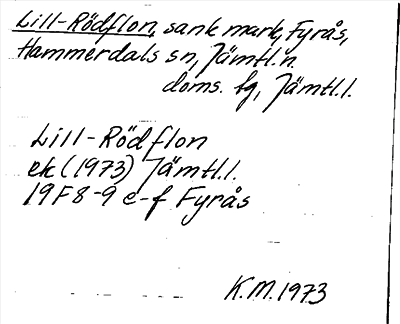 Lill-Rödflon, sank mark, Fyrås,
Hammerdals sn, Jämtl.n.
doms. fg, Jämtl.l.
Lill-Rödflon
ek (1973) Jämtl.l.
19F8-9 e-f Fyrås
K.M.1973